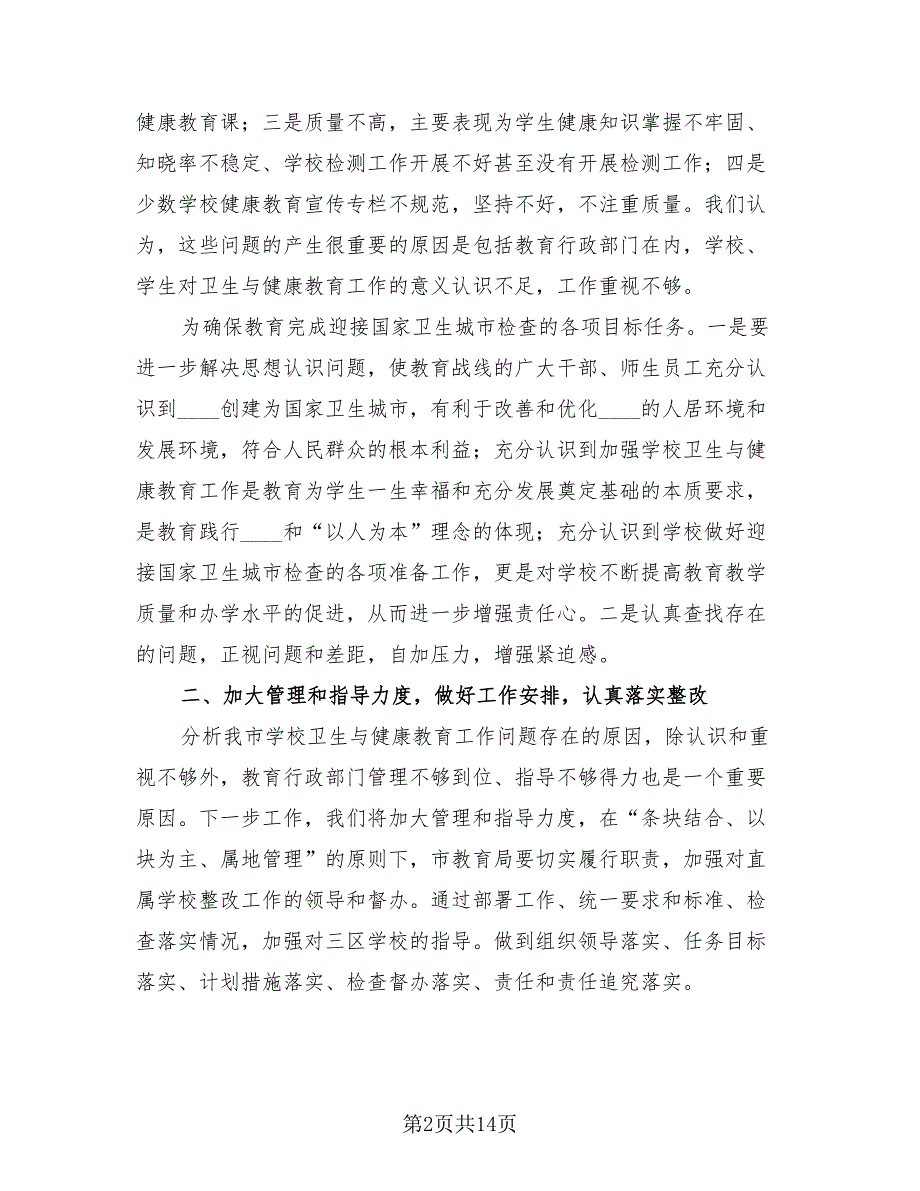 健康教育课；三是质量不高，主要表现为学生健康知识掌握不牢固、
知晓率不稳定、学校检测工作开展不好甚至没有开展检测工作；四是
少数学校健康教育宣传专栏不规范，坚持不好，不注重质量。我们认
为，这些问题的产生很重要的原因是包括教育行政部门在内，学校、
学生对卫生与健康教育工作的意义认识不足，工作重视不够。
为确保教育完成迎接国家卫生城市检查的各项目标任务。一是要
进一步解决思想认识问题，使教育战线的广大干部、师生员工充分认
识到____创建为国家卫生城市，有利于改善和优化____的人居环境和
发展环境，符合人民群众的根本利益；充分认识到加强学校卫生与健
康教育工作是教育为学生一生幸福和充分发展奠定基础的本质要求，
是教育践行____和“以人为本”理念的体现；充分认识到学校做好迎
接国家卫生城市检查的各项准备工作，更是对学校不断提高教育教学
质量和办学水平的促进，从而进一步增强责任心。二是认真查找存在
的问题，正视问题和差距，自加压力，增强紧迫感。
二、加大管理和指导力度，做好工作安排，认真落实整改
分析我市学校卫生与健康教育工作问题存在的原因，除认识和重
视不够外，教育行政部门管理不够到位、指导不够得力也是一个重要
原因。下一步工作，我们将加大管理和指导力度，在“条块结合、以
块为主、属地管理”的原则下，市教育局要切实履行职责，加强对直
属学校整改工作的领导和督办。通过部署工作、统一要求和标准、检
查落实情况，加强对三区学校的指导。做到组织领导落实、任务目标
落实、计划措施落实、检查督办落实、责任和责任追究落实。
第2页共14页